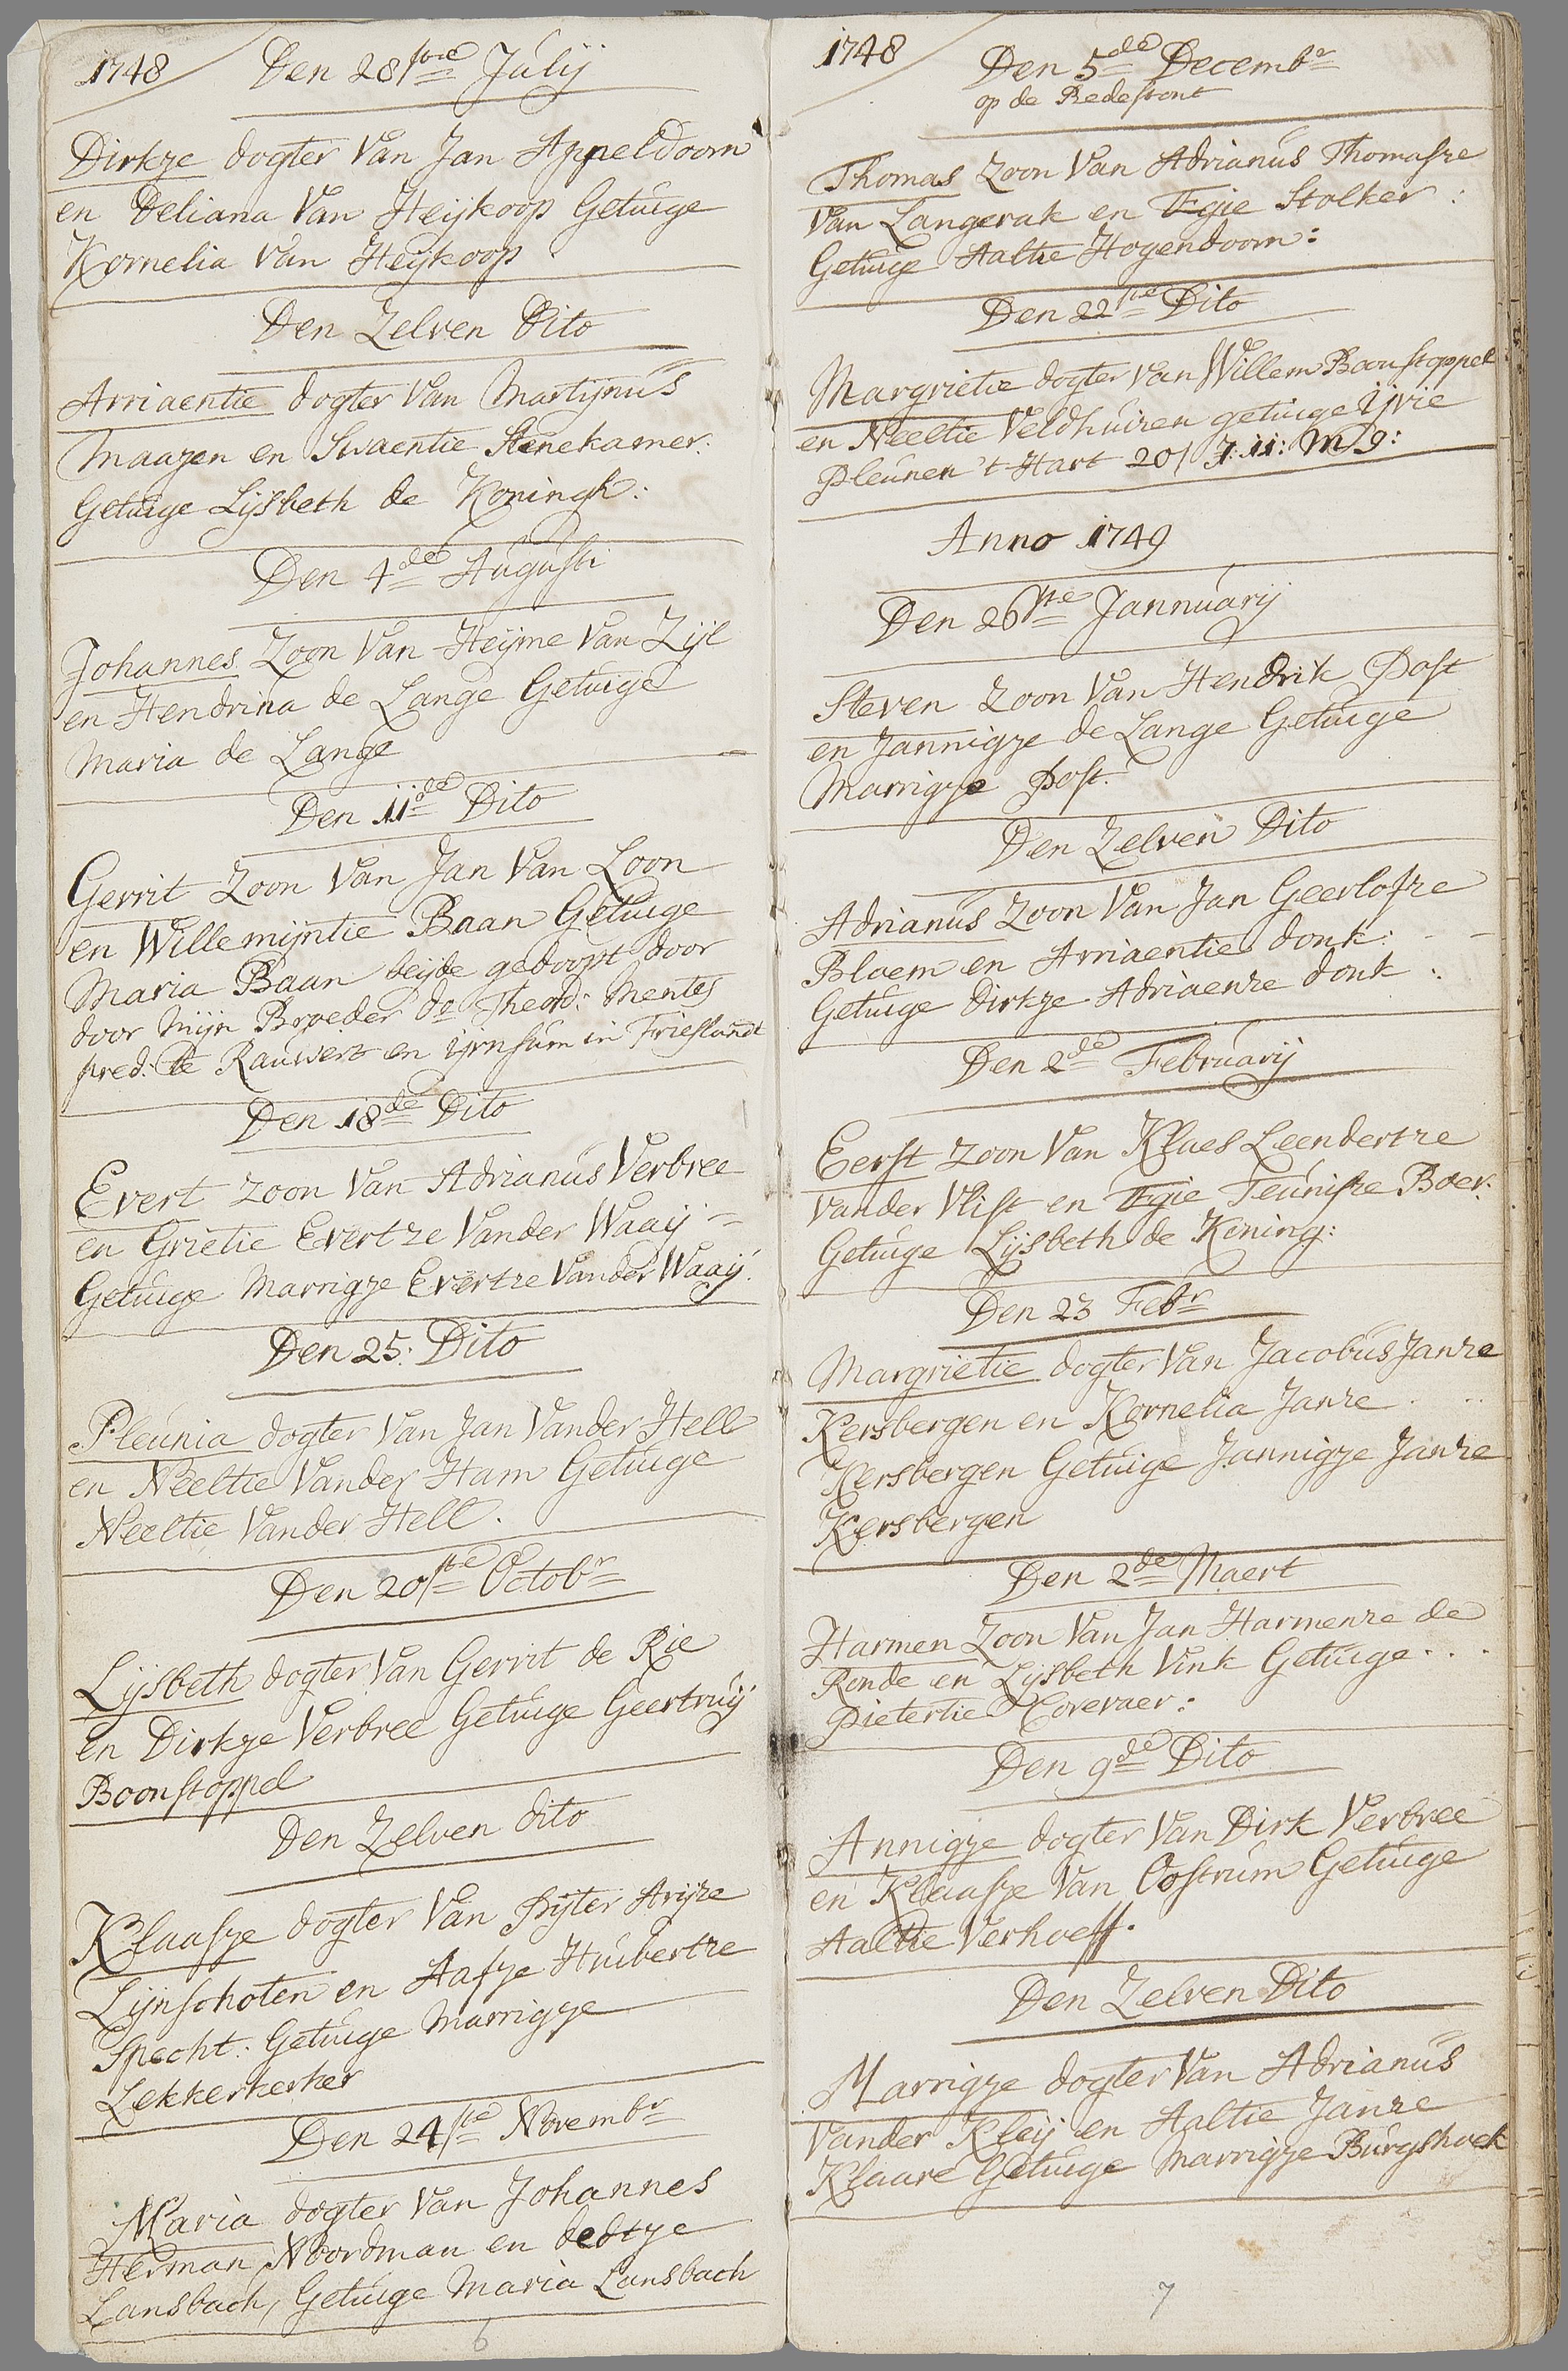 1748 Den 28ste Julij
Dirkze dogter Van Jan Appeldoorn
en Deliana Van Heijkoop Getuige
Kornelia Van Heijkoop
Den Zelven Dito
Arriaentie dogter Van Martijnus
Maazen en Swaentie Stenekamer:
Getuige Lijsbeth de Koningh:
Den 4de Augusti
Johannes Zoon Van Heijme Van Zijl
en Hendrina de Lange Getuige
Maria de Lange
Den 11de Dito
Gerrit Zoon Van Jan Van Loon
en Willemijntie Baan Getuige
Maria Baan beijde gedoopt door
door Mijn Broeder Do Theod: Mentes
pred: te Rauwert en ijrnsum in Frieslandt
Den 18de Dito
Evert zoon Van Adrianus Verbree
en Grietie Evertze Vander Waaij =
Getuige Marrigze Evertze Vander Waaij.
Den 25: Dito
Pleunia dogter Van Jan Vander Hell
en Neeltie Vander Ham Getuige
Neeltie Vander Hell.
Den 20ste Octobr
Lijsbeth dogter Van Gerrit de Rie
en Dirkze Verbree Getuige Geertruij
Boonstoppel
Den Zelven dito
Klaasze dogter Van Pijter Arijze
Lijnschoten en Aafze Huibertze
Specht: Getuige Marrigze
Lekkerkerker
Den 24ste Novembr
Maria dogter Van Johannes
Herman Noordman en
Lansbach, Getuige Maria Lansbach
6
1748 Den 5de Decembr
op de Bedestont
Thomas Zoon Van Adrianus Thomasze
Van Langerak en Egie Stolker:
Getuige Aaltie Hogendoorn:
Den 22ste Dito
Margrietie dogter Van Willem Boonstoppel
en Neeltie Veldhuizen getuige Ijvie
Pleunen 't Hart 20/ J: 11: M 9:
Anno 1749
Den 26ste Jannuarij
Steven Zoon Van Hendrik Post
en Jannigze de Lange Getuige
Marrigze Post.
Den Zelven Dito
Adrianus Zoon Van Jan Geerlofze
Bloem en Arriaentie donk: - -
Getuige Dirkze Adriaenze donk:
Den 2de Februarij
Eerst zoon Van Klaes Leendertze
Vander Vlist en Egie Teunisze Boer:
Getuige Lijsbeth de Kening:
Den 23 Febr
Margrietie dogter Van Jacobus Janze
Kersbergen en Kornelia Janze . . .
Kersbergen Getuige Jannigze Janze
Kersbergen
Den 2de Maert
Harmen Zoon Van Jan Harmenze de
Ronde en Lijsbeth Vink Getuige . . .
Pietertie Hoveraer:
Den 9de Dito
Annigze dogter Van Dirk Verbree
en Klaasze Van Oostrum Getuige
Aaltie Verhoeff.
Den Zelven Dito
Marrigze dogter Van Adrianus
Vander Kleij en Aaltie Janze
Klaare Getuige Marrigze Burgshoek
7